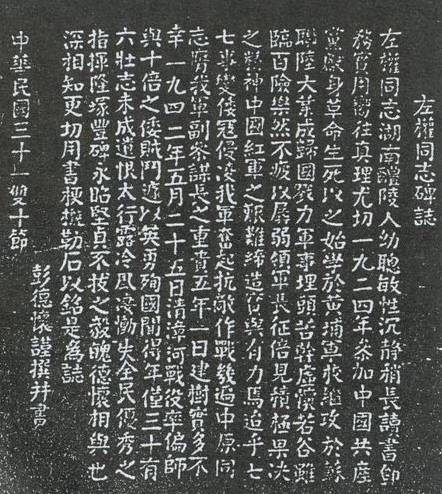 左權同志碑誌
左權同志湖南醴陵人幼聰敏性沉靜稍長讀書即
務實用嚮往真理尤切一九二四年參加中國共產
黨獻身革命生死以之始學於黃埔軍校繼攻於蘇
聯陸大業成歸國戮力軍事埋頭苦幹虛懷若谷雖
臨百險樂然不疲以孱弱領軍長征倍見積極果決
之精神中國紅軍之艱難締造實與有力焉迨乎七
七事變倭寇侵凌我軍奮起抗敵作戰幾遍中原同
志膺我軍副參謀長之重責五年一日建樹實多不
幸一九四二年五月二十五日清漳河戰役率偏師
與十倍之倭賊鬥遽以英勇殉國聞得年僅三十有
六壯志未成遺恨太行露冷風凄慟失全民優秀之
指揮隆塚豐碑永昭堅貞不拔之毅魄德懷相與也
深相知更切用書梗概勒石以銘是為誌
彭德懷謹撰并書
中華民國三十一雙十節